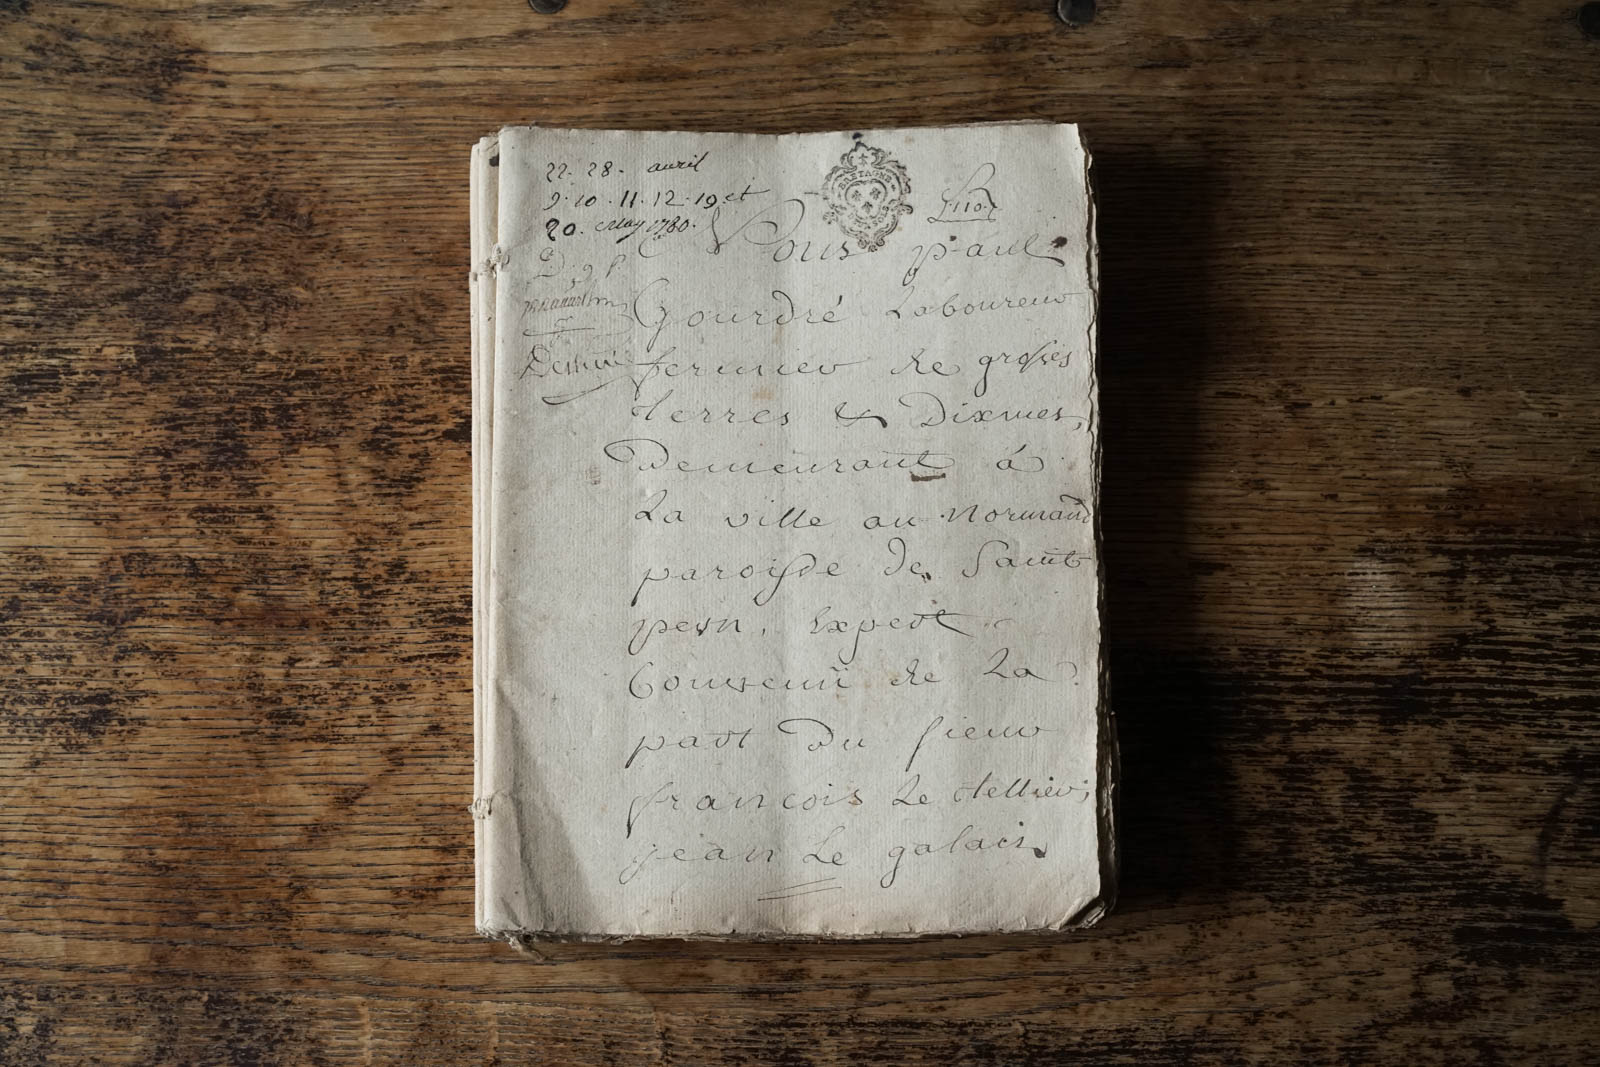 22. 28. avril
9. 10. 11. 12. 19 et
20. May 1780.
BRETAGNE
Nous paul
Gourdré Laboureur
fermier de grosses
terres & Dixmes,
Demeurant á
La ville au Normand
paroisse de Saint
pern, Expert
Convenü de La
part Du sieur
françois Le tellier,
jean Le galais